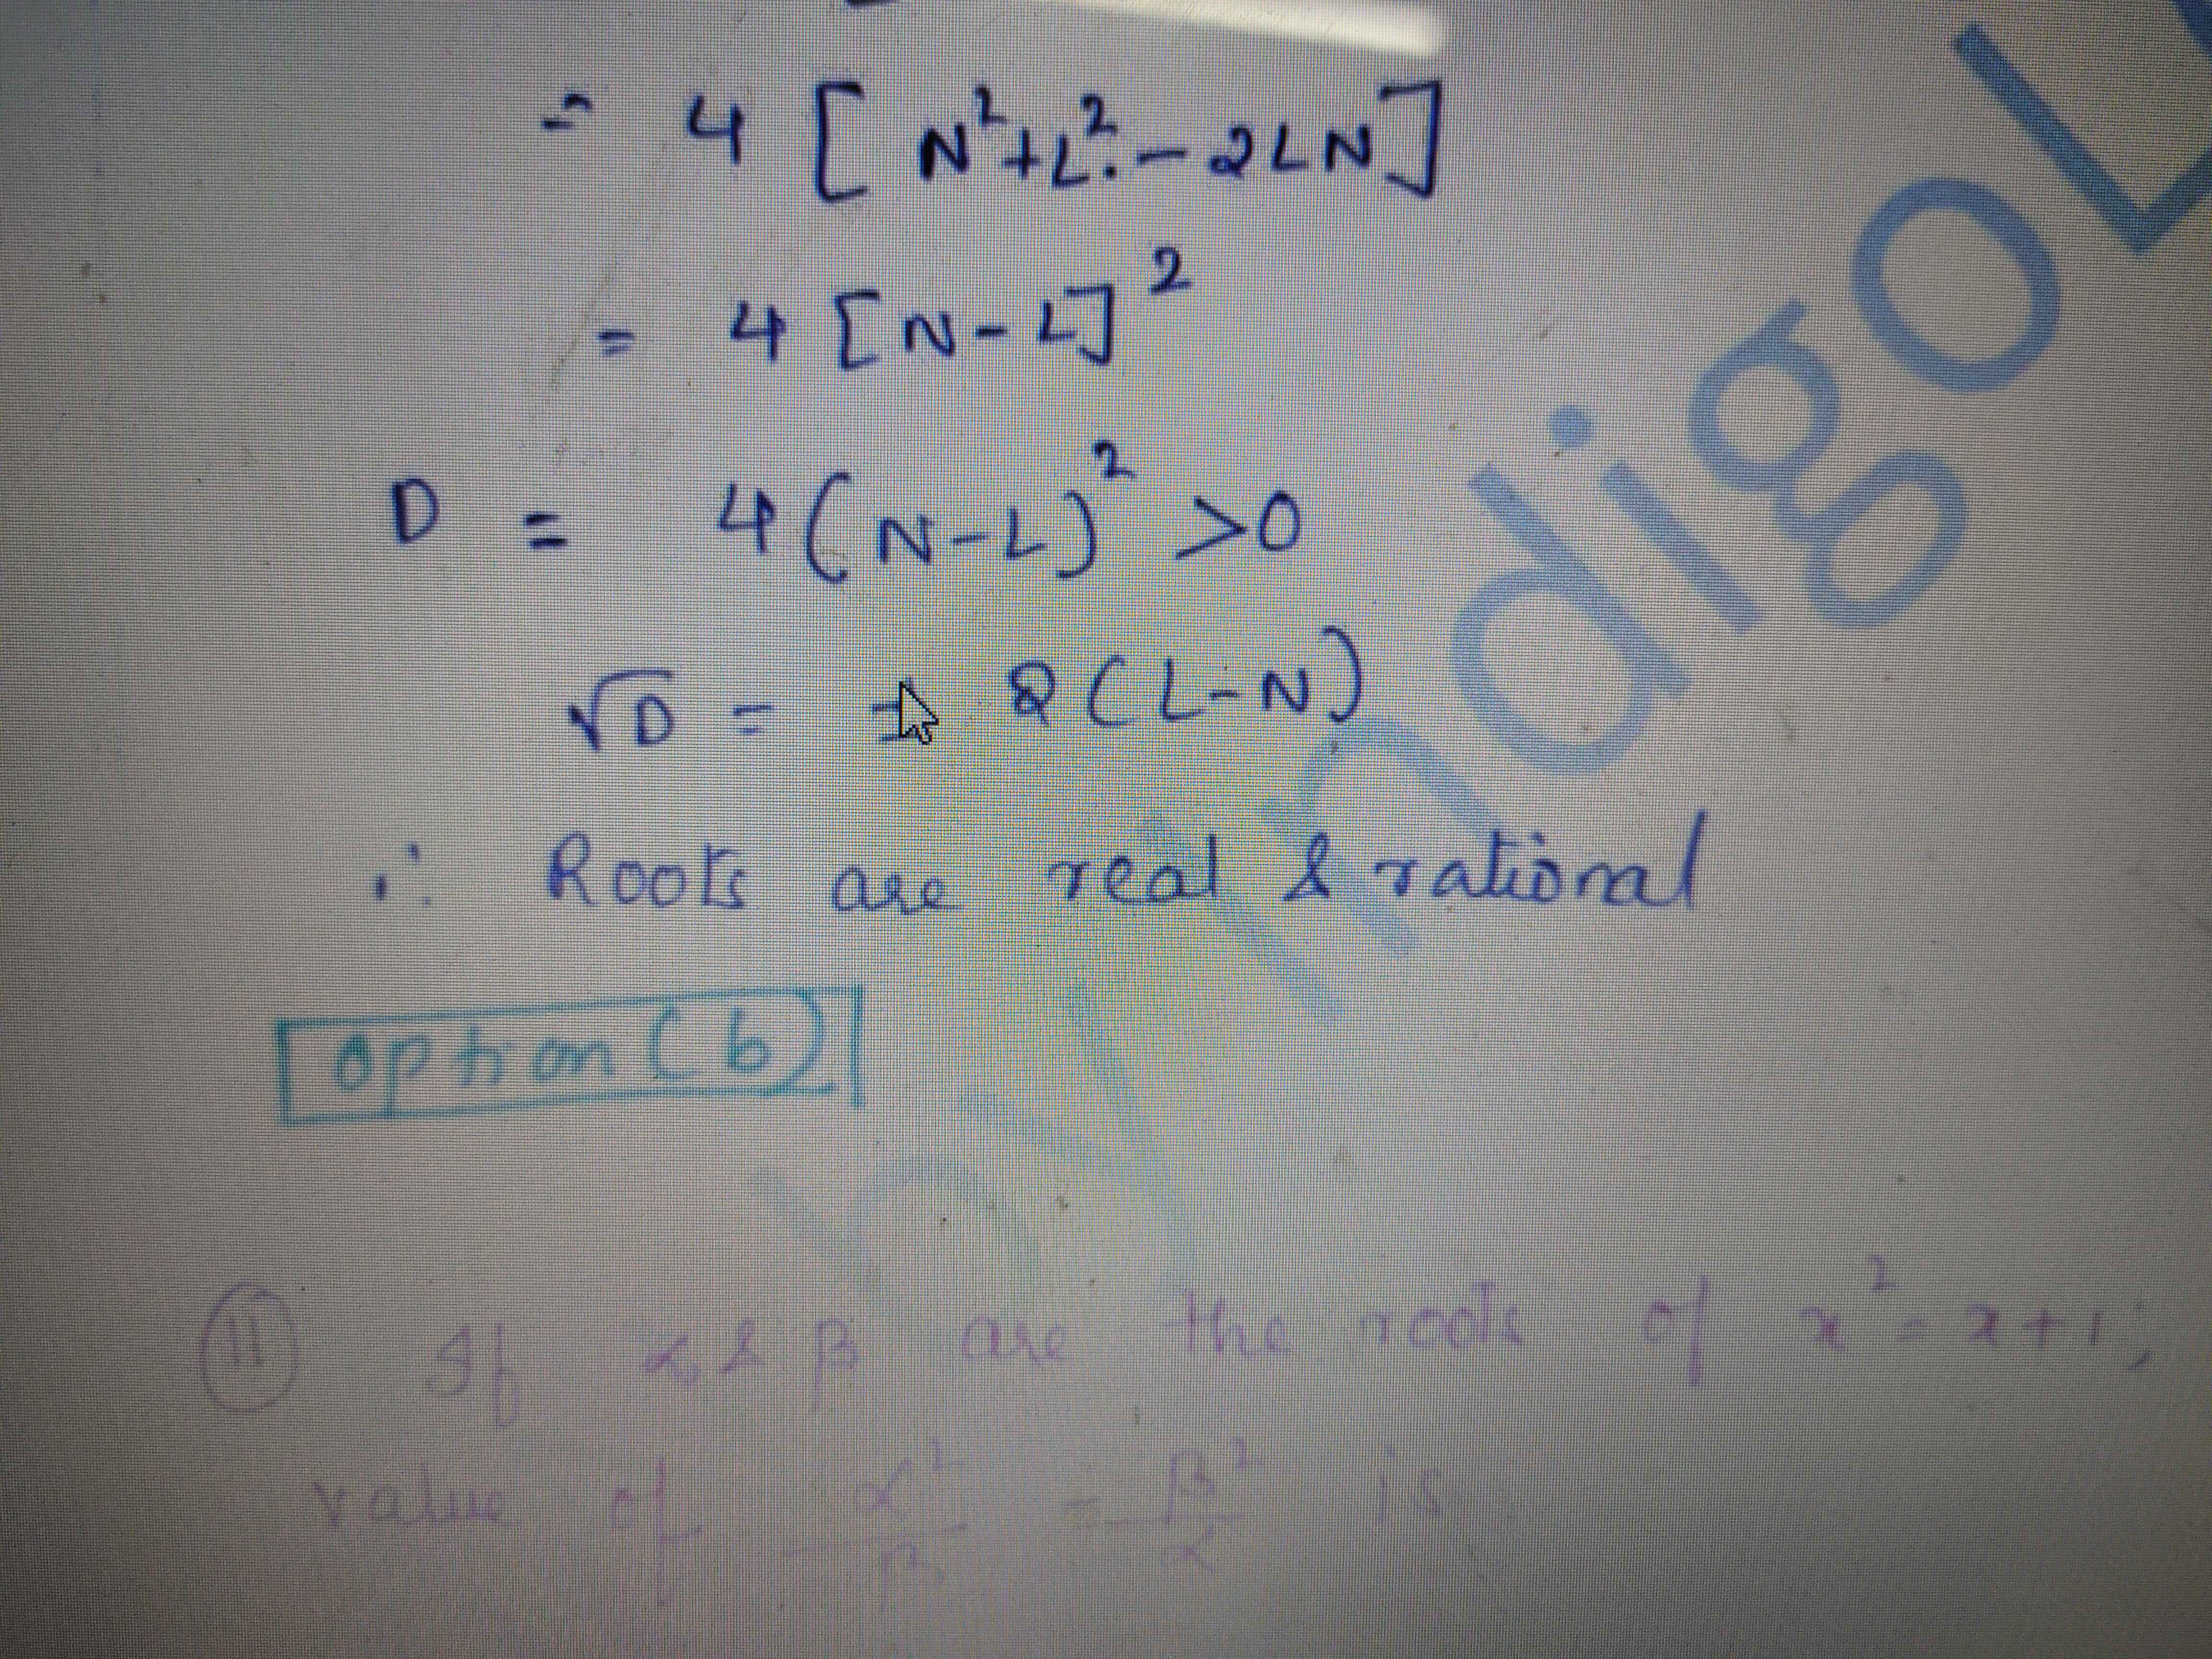 = 4 [ N²+L²-2LN]
= 4 [N-L]²
D = 4(N-L)² >0
√D = ± 2(L-N)
∴ Roots are real & rational
option(b)
11 If α & β are the roots of x² = x+1,
value of α²/β - β²/α is
ndigoL